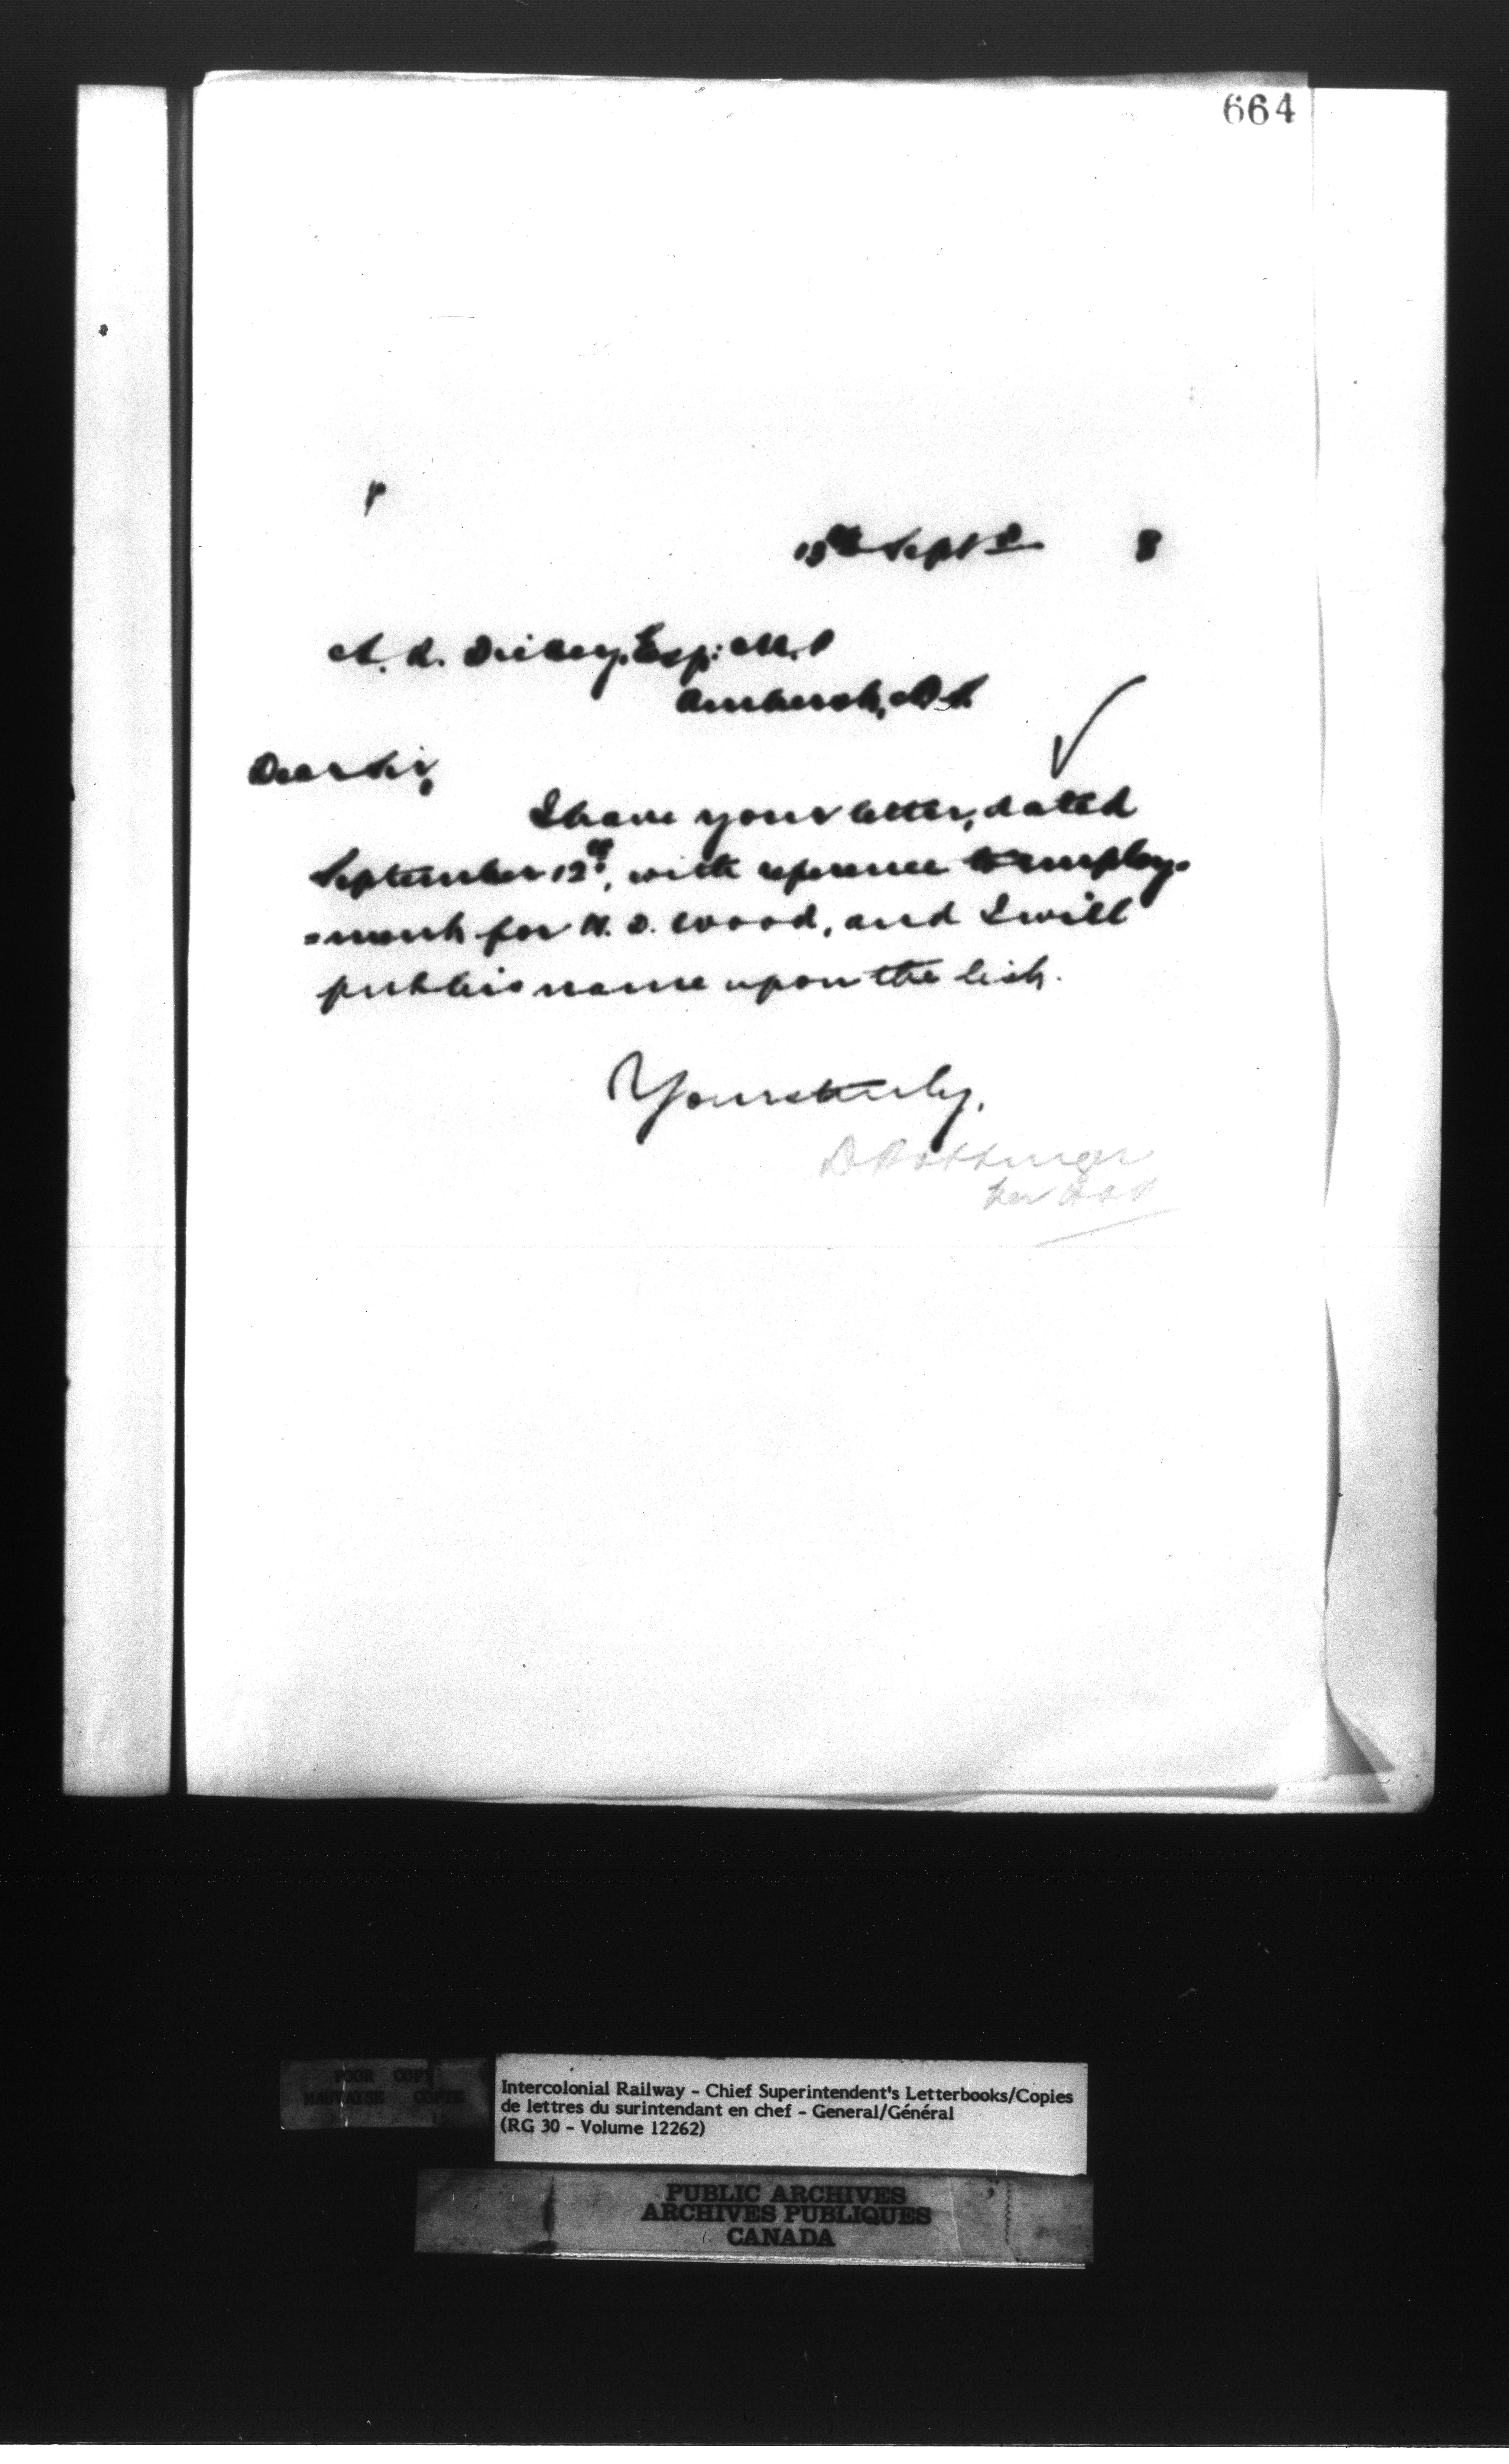 664
13th Septr 8
A. R. Dickey, Esq: M.P
Amherst, N.S.
Dear Sir,
I have your letter, dated
September 12th, with reference to employ-
=ment for N. D. Wood, and I will
put his name upon the list.
Yours truly,
D Pottinger
POOR COPY
MAUVAISE COPIE
Intercolonial Railway - Chief Superintendent's Letterbooks/Copies
de lettres du surintendant en chef - General/Général
(RG 30 - Volume 12262)
PUBLIC ARCHIVES
ARCHIVES PUBLIQUES
CANADA